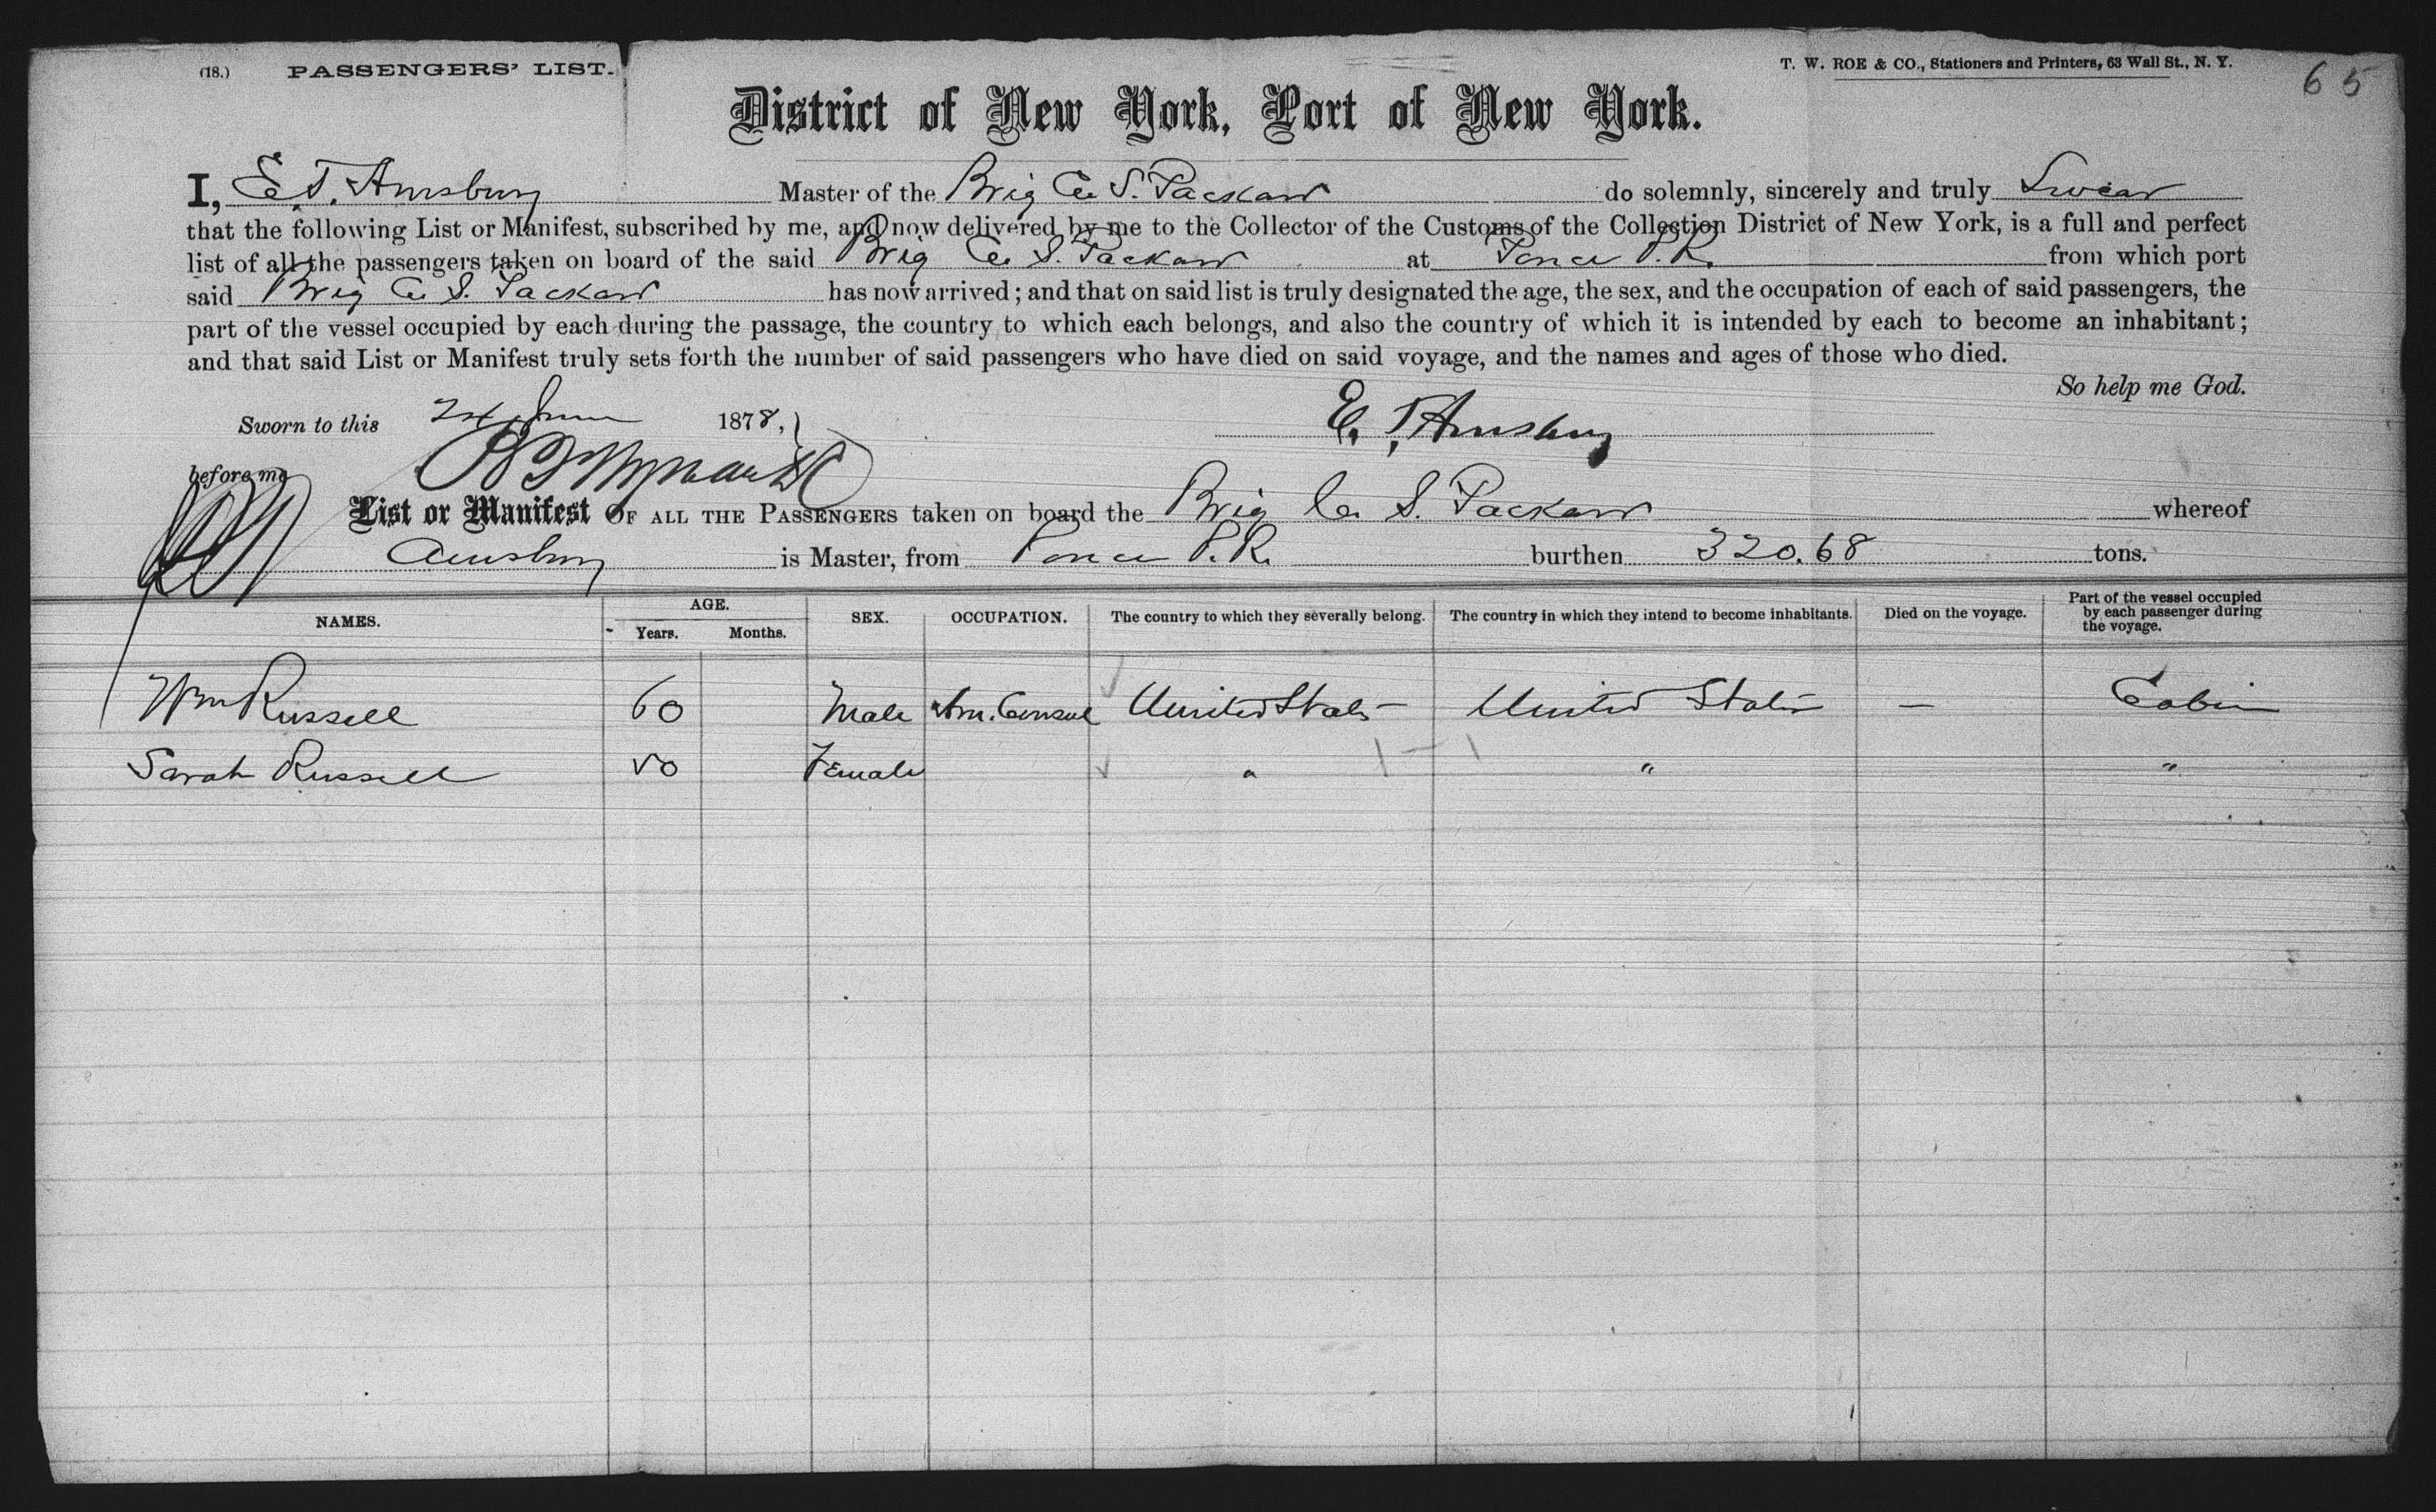 (18.) PASSENGERS' LIST. T. W. ROE & CO., Stationers and Printers, 63 Wall St., N. Y. 65
District of New York, Port of New York.
I, E. T. Amsbury Master of the Brig C. S. Packard do solemnly, sincerely and truly Swear
that the following List or Manifest, subscribed by me, and now delivered by me to the Collector of the Customs of the Collection District of New York, is a full and perfect
list of all the passengers taken on board of the said Brig C. S. Packard at Ponce P. R. from which port
said Brig C. S. Packard has now arrived; and that on said list is truly designated the age, the sex, and the occupation of each of said passengers, the
part of the vessel occupied by each during the passage, the country to which each belongs, and also the country of which it is intended by each to become an inhabitant;
and that said List or Manifest truly sets forth the number of said passengers who have died on said voyage, and the names and ages of those who died.
So help me God.
Sworn to this 24 June 1878, E. T. Amsbury
before me
List or Manifest OF ALL THE PASSENGERS taken on board the Brig C. S. Packard whereof
Amsbury is Master, from Ponce P. R. burthen 320.68 tons.
NAMES. AGE. Years. Months. SEX. OCCUPATION. The country to which they severally belong. The country in which they intend to become inhabitants. Died on the voyage. Part of the vessel occupied by each passenger during the voyage.
Wm Russell 60 Male Am. Consul United States United States — Cabin
Sarah Russell 50 Female " " "